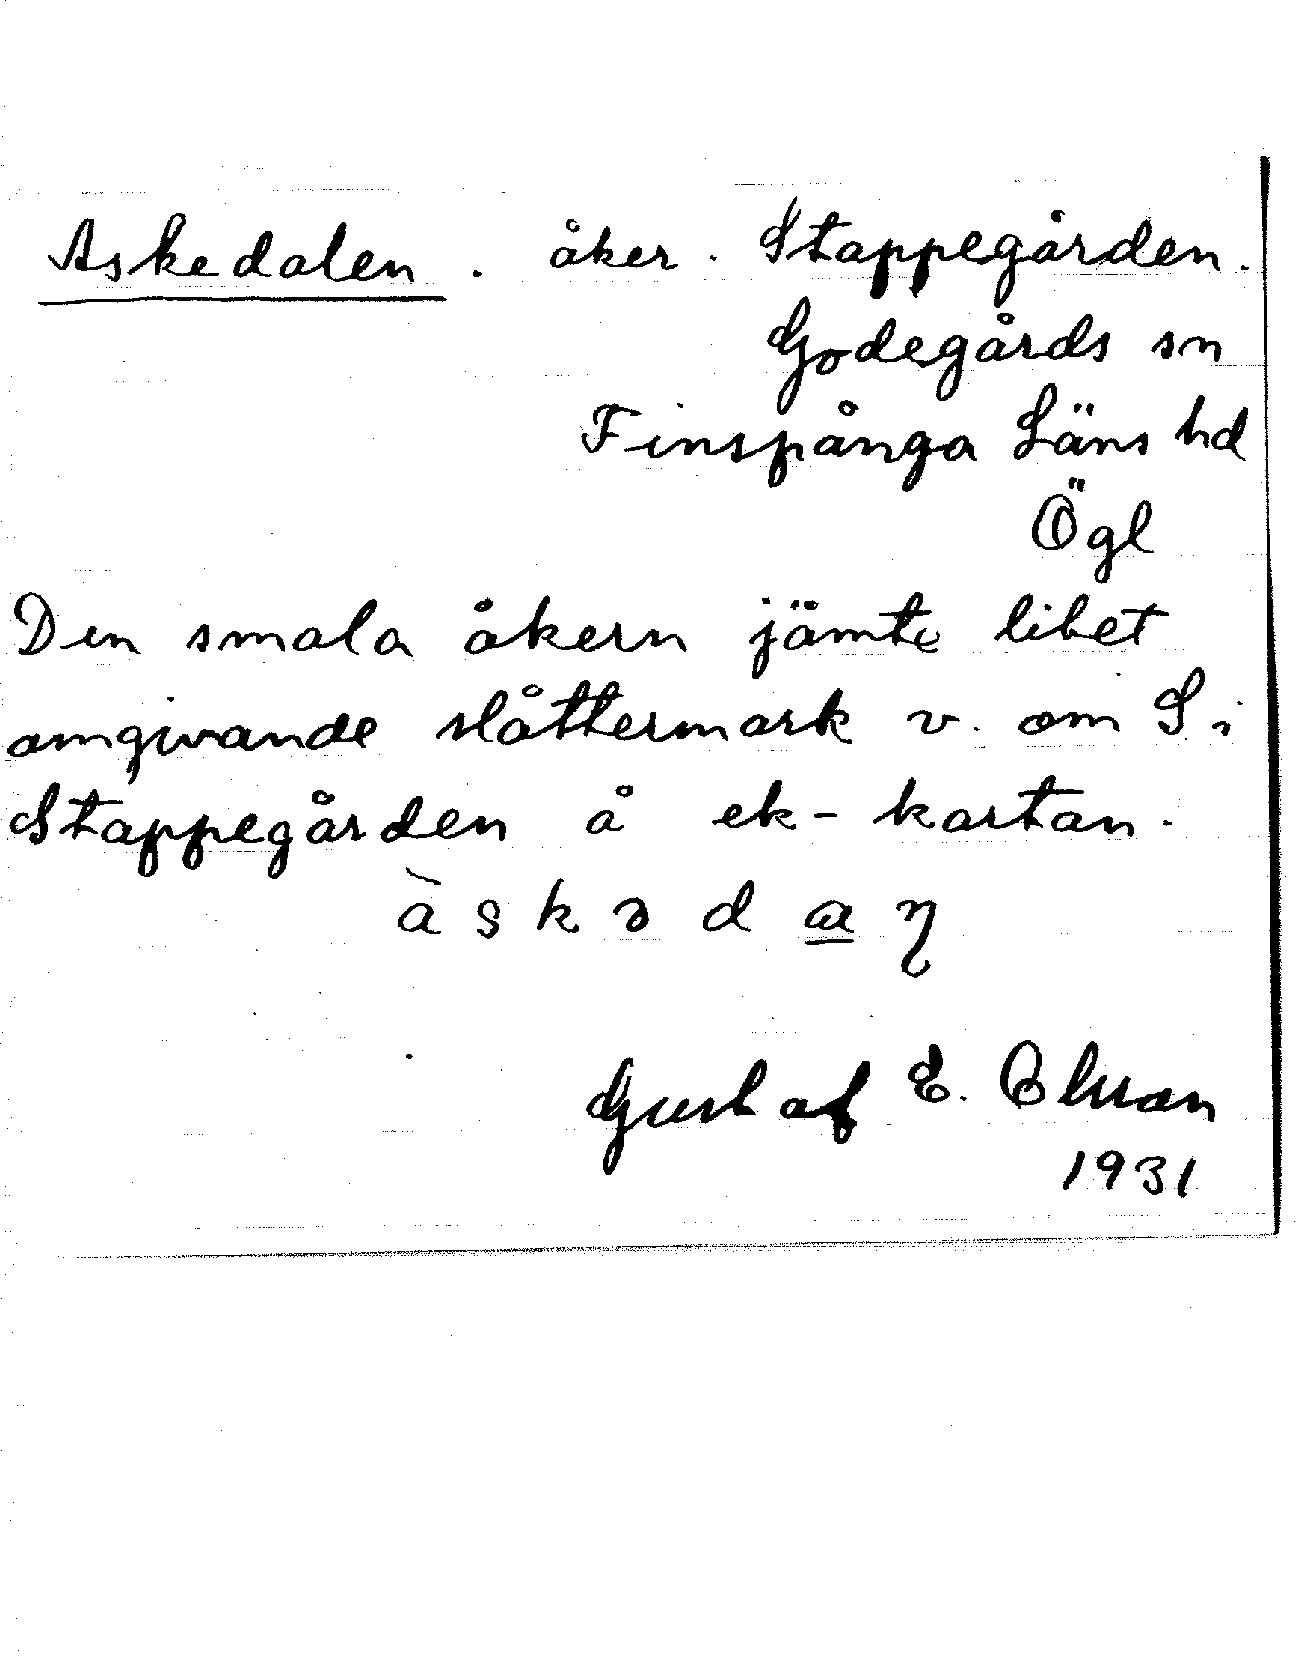 Askedalen. åker. Stappegården.
Godegårds sn
Finspånga Läns hd
Ögl
Den smala åkern jämte litet
omgivande slåttermark v. om S i
Stappegården å ek-kartan.
àskəda
Gustaf E.
1931